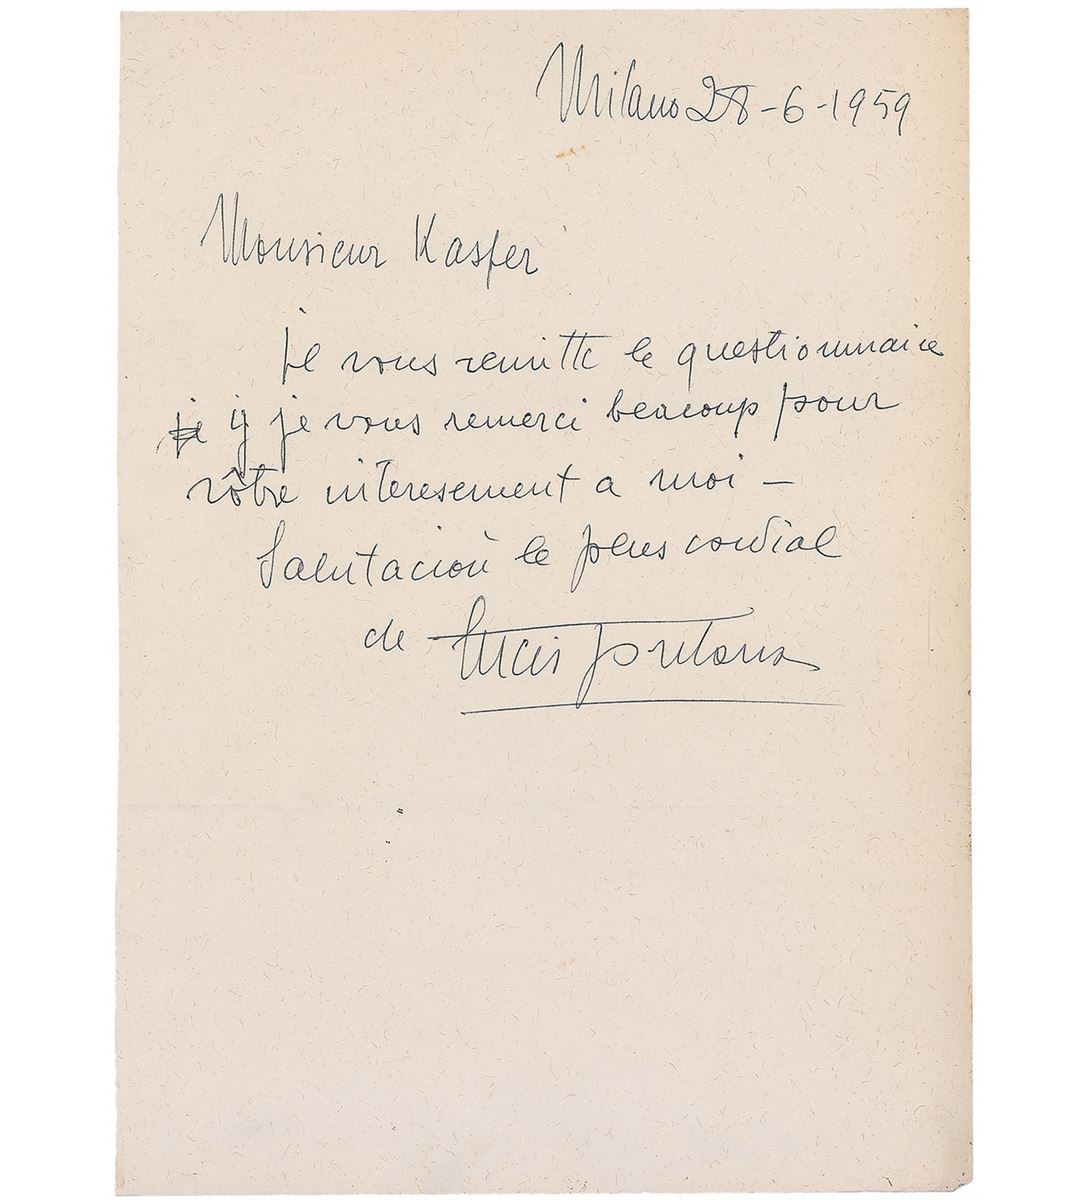 Milano 28-6-1959
Monsieur Kasper
je vous remitte le questionnaire
y je vous remerci beaucoup pour
vôtre interesement a moi -
Salutacion le plus cordial
de Lucio Fontana